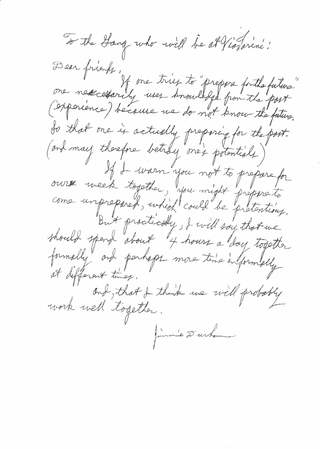 To the Gang who will be at Viafarini:
Dear friends,
If one tries to "prepare for the future"
one necessarily uses knowledge from the past
(experience) because we do not know the future,
so that one is actually preparing for the past.
(and may therefore betray one's potentials)
If I warn you not to prepare for
our week together, you might prepare to
come unprepared, which could be pretentious.
But practically, I will say that we
should spend about 4 hours a day together
formally and perhaps more time informally
at different times.
And, that I think we will probably
work well together.
Jimmie Durham